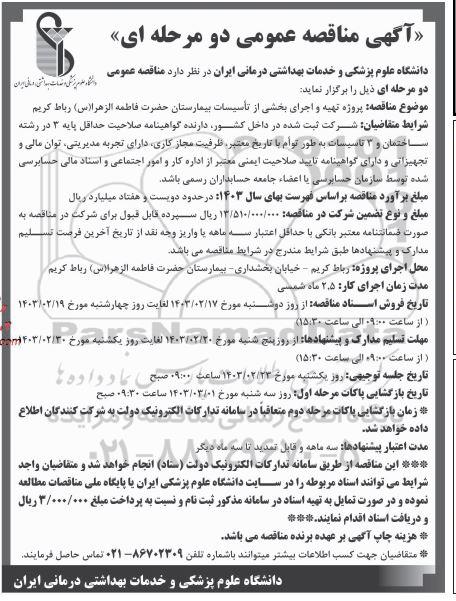 «آگهی مناقصه عمومی دو مرحله ای»
دانشگاه علوم پزشکی و خدمات بهداشتی، درمانی ایران
دانشگاه علوم پزشکی و خدمات بهداشتی درمانی ایران در نظر دارد مناقصه عمومی
دو مرحله ای ذیل را برگزار نماید:
موضوع مناقصه: پروژه تهیه و اجرای بخشی از تأسیسات بیمارستان حضرت فاطمه الزهرا(س) رباط کریم
شرایط متقاضیان: شرکت ثبت شده در داخل کشور، دارنده گواهینامه صلاحیت حداقل پایه ۳ در رشته
ساختمان و ۳ تاسیسات به طور توأم با تاریخ معتبر، ظرفیت مجاز کاری، دارای تجربه مدیریتی، توان مالی و
تجهیزاتی و دارای گواهینامه تایید صلاحیت ایمنی معتبر از اداره کار و امور اجتماعی و اسناد مالی حسابرسی
شده توسط سازمان حسابرسی یا اعضاء جامعه حسابداران رسمی باشد.
مبلغ برآورد مناقصه براساس فهرست بهای سال ۱۴۰۳: درحدود دویست و هفتاد میلیارد ریال
مبلغ و نوع تضمین شرکت در مناقصه: ۱۳/۵۱۰/۰۰۰/۰۰۰ ریال سپرده قابل قبول برای شرکت در مناقصه به
صورت ضمانتنامه معتبر بانکی با حداقل اعتبار سه ماهه یا واریز وجه نقد از تاریخ آخرین فرصت تسلیم
مدارک و پیشنهادها طبق شرایط مندرج در شرایط مناقصه می باشد.
محل اجرای پروژه: رباط کریم - خیابان بخشداری- بیمارستان حضرت فاطمه الزهرا(س) رباط کریم
مدت زمان اجرای کار: ۲.۵ ماه شمسی
تاریخ فروش اسناد مناقصه: از روز دوشنبه مورخ ۱۴۰۳/۰۲/۱۷ لغایت روز چهارشنبه مورخ ۱۴۰۳/۰۲/۱۹
( از ساعت ۰۹:۰۰ الی ساعت ۱۵:۳۰)
مهلت تسلیم مدارک و پیشنهادها: از روز پنج شنبه مورخ ۱۴۰۳/۰۲/۲۰ لغایت روز یکشنبه مورخ ۱۴۰۳/۰۲/۳۰
( از ساعت ۰۹:۰۰ الی ساعت ۱۵:۳۰)
تاریخ جلسه توجیهی: روز یکشنبه مورخ ۱۴۰۳/۰۲/۲۳ ساعت ۰۹:۰۰ صبح
تاریخ بازگشایی پاکات مرحله اول: روز سه شنبه مورخ ۱۴۰۳/۰۳/۰۱ ساعت ۰۹:۳۰ صبح
* زمان بازگشایی پاکات مرحله دوم متعاقباً در سامانه تدارکات الکترونیک دولت به شرکت کنندگان اطلاع
داده خواهد شد.
مدت اعتبار پیشنهادها: سه ماهه و قابل تمدید تا سه ماه دیگر
*** این مناقصه از طریق سامانه تدارکات الکترونیک دولت (ستاد) انجام خواهد شد و متقاضیان واجد
شرایط می توانند اسناد مربوطه را در سایت دانشگاه علوم پزشکی ایران یا پایگاه ملی مناقصات مطالعه
نموده و در صورت تمایل به تهیه اسناد در سامانه مذکور ثبت نام و نسبت به پرداخت مبلغ ۳/۰۰۰/۰۰۰ ریال
و دریافت اسناد اقدام نمایند.***
* هزینه چاپ آگهی بر عهده برنده مناقصه می باشد.
* متقاضیان جهت کسب اطلاعات بیشتر میتوانند باشماره تلفن ۸۶۷۰۲۳۰۹-۰۲۱ تماس حاصل فرمایند.
دانشگاه علوم پزشکی و خدمات بهداشتی درمانی ایران